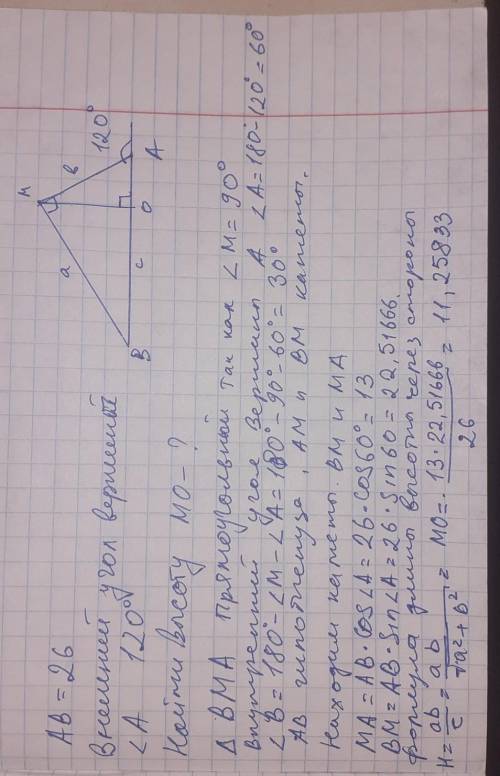 AB = 26
Внешний угол вершины
∠A 120°
Найти высоту MO - ?
Δ BMA прямоугольный так как ∠M = 90°
внутренний угол вершины A ∠A = 180° - 120° = 60°
∠B = 180° - ∠M - ∠A = 180° - 90° - 60° = 30°
AB гипотенуза, AM и BM катеты.
Находим катеты. BM и MA
MA = AB · cos∠A = 26 · cos60° = 13
BM = AB · Sin∠A = 26 · Sin60 = 22,51666.
формула длины высоты через стороны
H = ab/c = ab/√a² + b² = MO = 13 · 22,51666/26 = 11,25833
M
a
в
120°
B
c
O
A